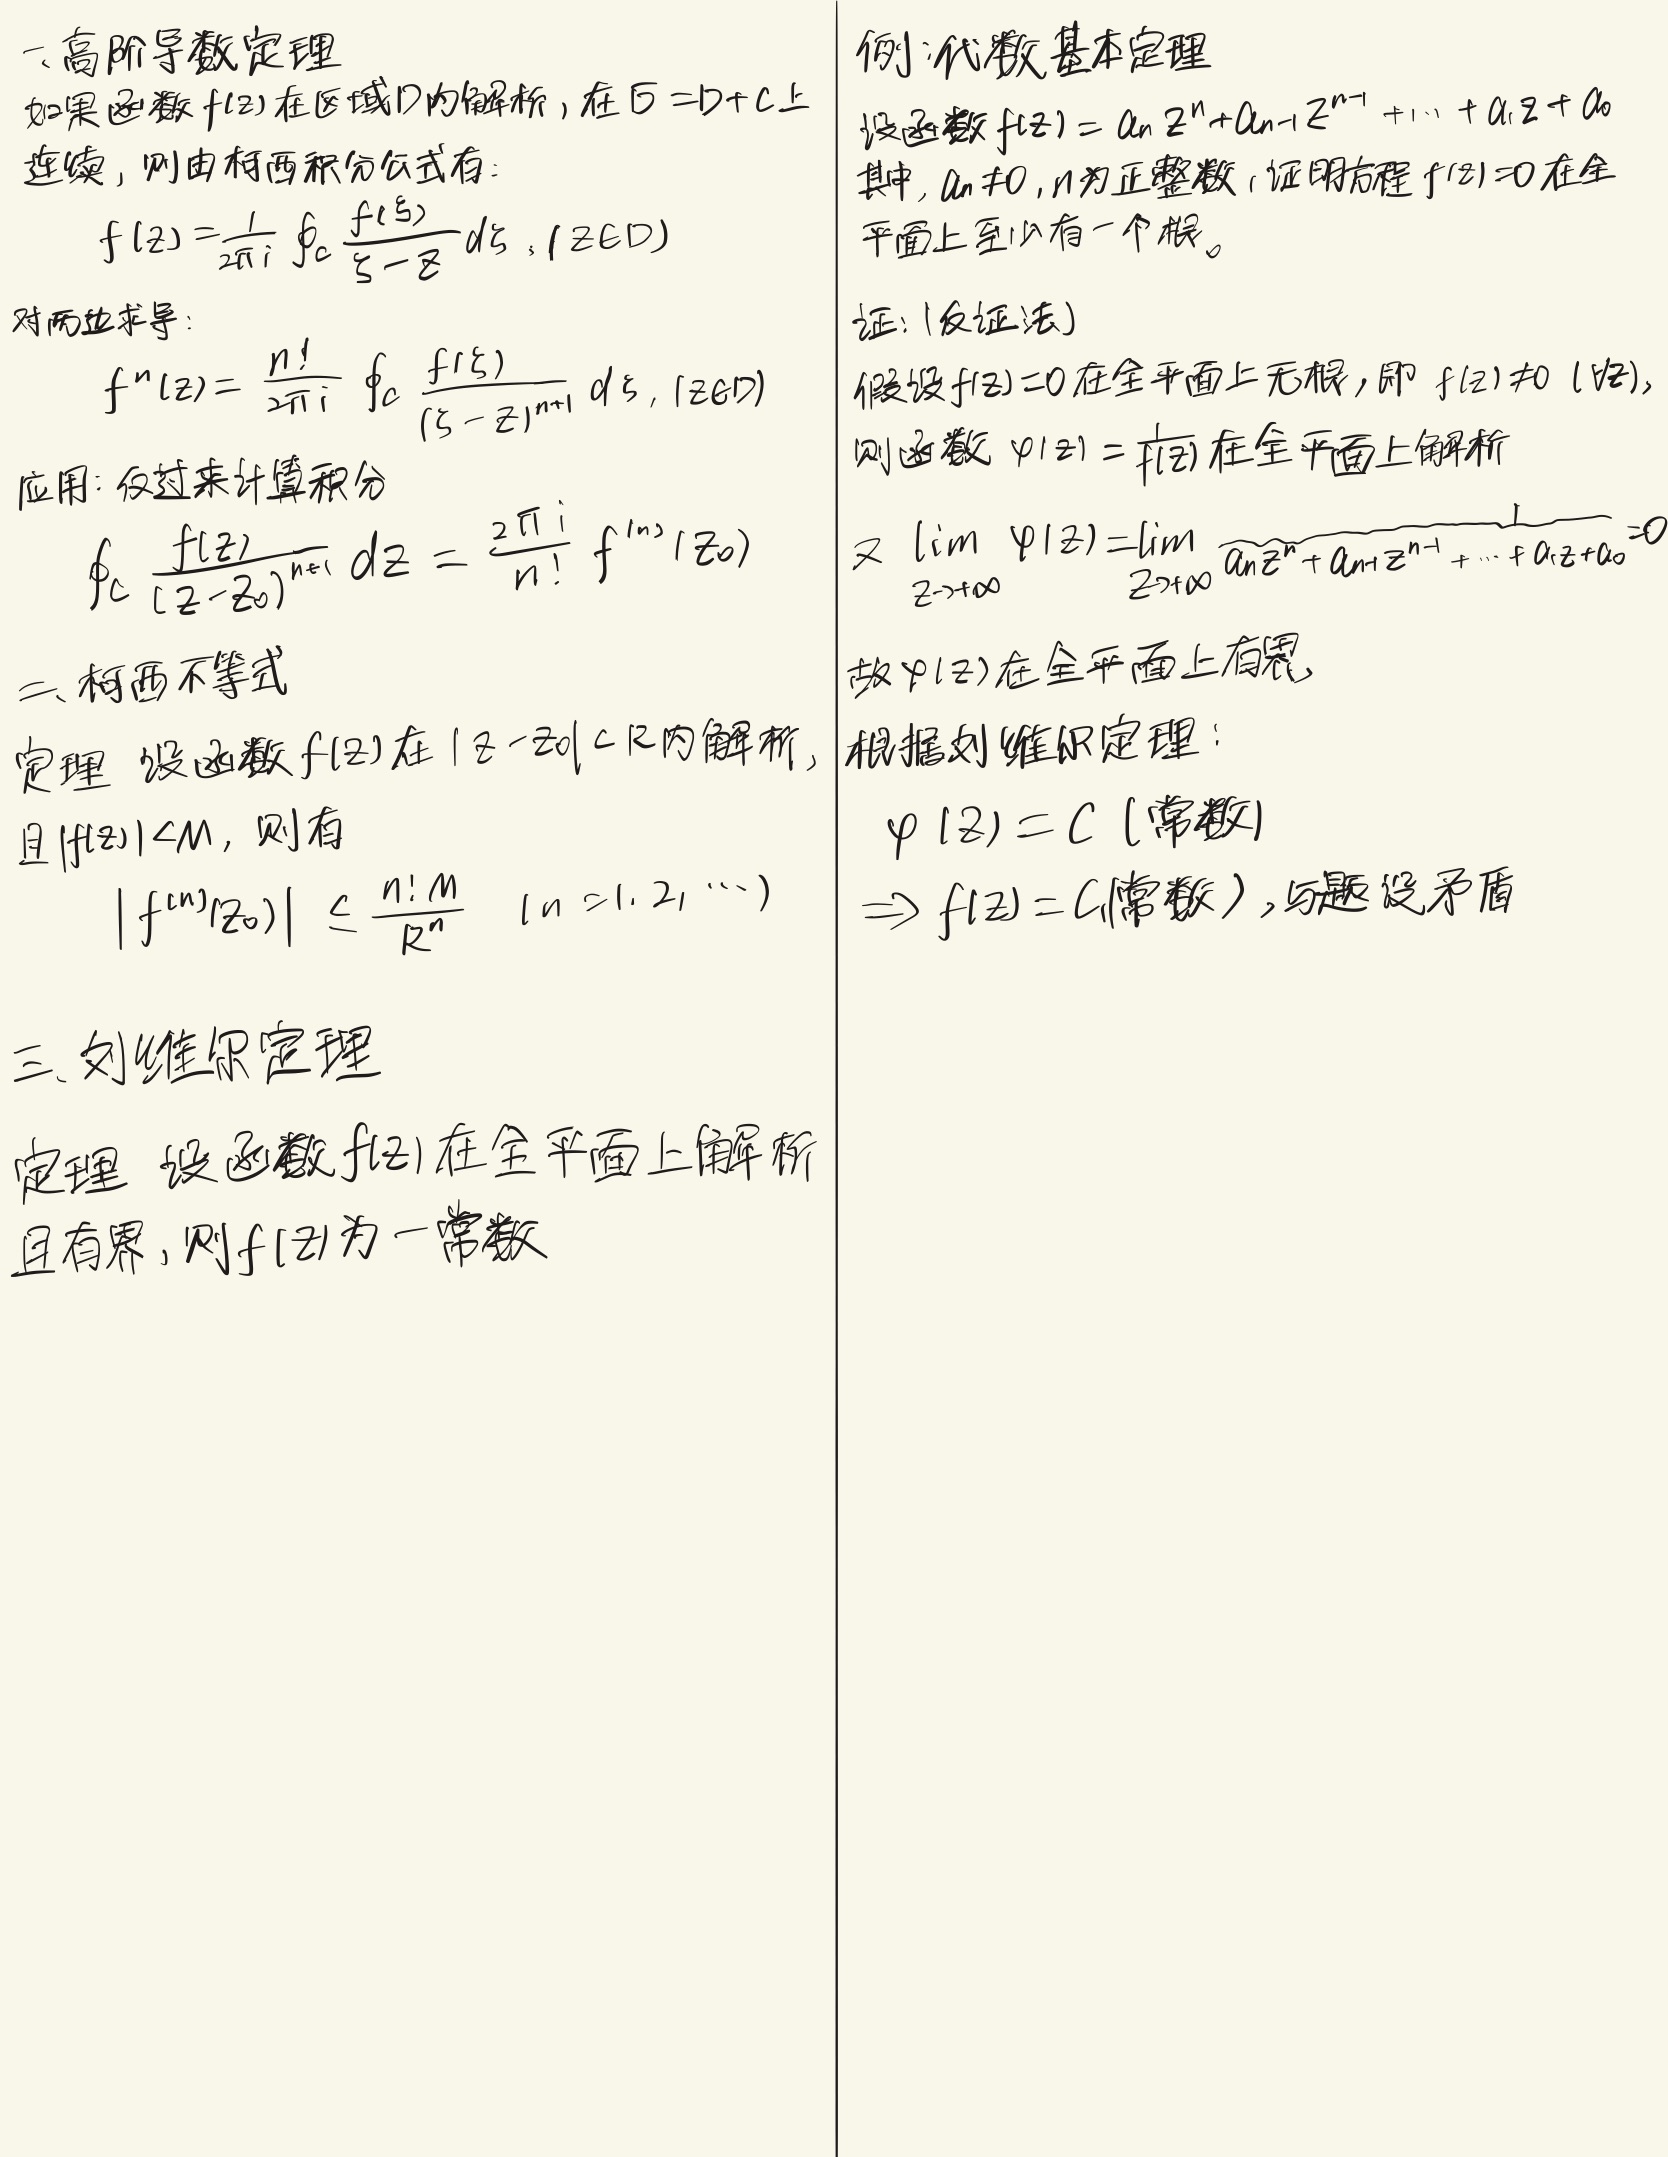 一、高阶导数定理
如果函数f(z)在区域D内解析，在D̅=D+C上
连续，则由柯西积分公式有：
f(z) = 1/(2πi) ∮_C f(ξ)/(ξ-z) dξ, (z∈D)
对两边求导：
fⁿ(z) = n!/(2πi) ∮_C f(ξ)/(ξ-z)^(n+1) dξ, (z∈D)
应用：反过来计算积分
∮_C f(z)/(z-z₀)^(n+1) dz = 2πi/n! f⁽ⁿ⁾(z₀)
二、柯西不等式
定理 设函数f(z)在|z-z₀|<R内解析，
且|f(z)|<M，则有
|f⁽ⁿ⁾(z₀)| ≤ n!M/Rⁿ (n=1, 2, ⋯)
三、刘维尔定理
定理 设函数f(z)在全平面上解析
且有界，则f(z)为一常数
例：代数基本定理
设函数f(z) = aₙzⁿ+aₙ₋₁zⁿ⁻¹+⋯+a₁z+a₀
其中，aₙ≠0，n为正整数，证明方程f(z)=0在全
平面上至少有一个根。
证：(反证法)
假设f(z)=0在全平面上无根，即 f(z)≠0 (∀z),
则函数 φ(z) = 1/f(z) 在全平面上解析
又 lim_{z→+∞} φ(z) = lim_{z→+∞} 1/(aₙzⁿ+aₙ₋₁zⁿ⁻¹+⋯+a₁z+a₀) = 0
故φ(z)在全平面上有界，
根据刘维尔定理：
φ(z) = C (常数)
⇒ f(z) = C₁(常数)，与题设矛盾